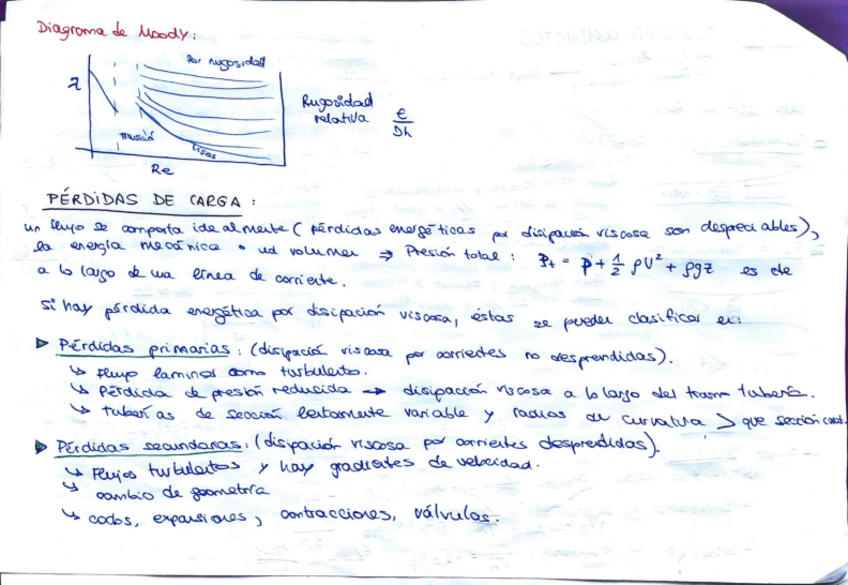 Diagrama de Moody:
Par rugosidad
λ
Transición
Lisas
Re
Rugosidad relativa ε/Dh
PÉRDIDAS DE CARGA:
un flujo se comporta idealmente (pérdidas energéticas por disipación viscosa son despreciables),
la energía mecánica • ud volumen ⇒ Presión total: Pt = p + 1/2 ρU² + ρgz es cte
a lo largo de una línea de corriente.
si hay pérdida energética por disipación viscosa, éstas se pueden clasificar en:
▷ Pérdidas primarias: (disipación viscosa por corrientes no desprendidas).
↳ Flujo laminar como turbulento.
↳ Pérdida de presión reducida → disipación viscosa a lo largo del tramo tubería.
↳ tuberías de sección lentamente variable y radios de curvatura > que sección cond.
▷ Pérdidas secundarias: (disipación viscosa por corrientes desprendidas).
↳ Flujos turbulentos y hay gradientes de velocidad.
↳ cambio de geometría
↳ codos, expansiones, contracciones, válvulas.